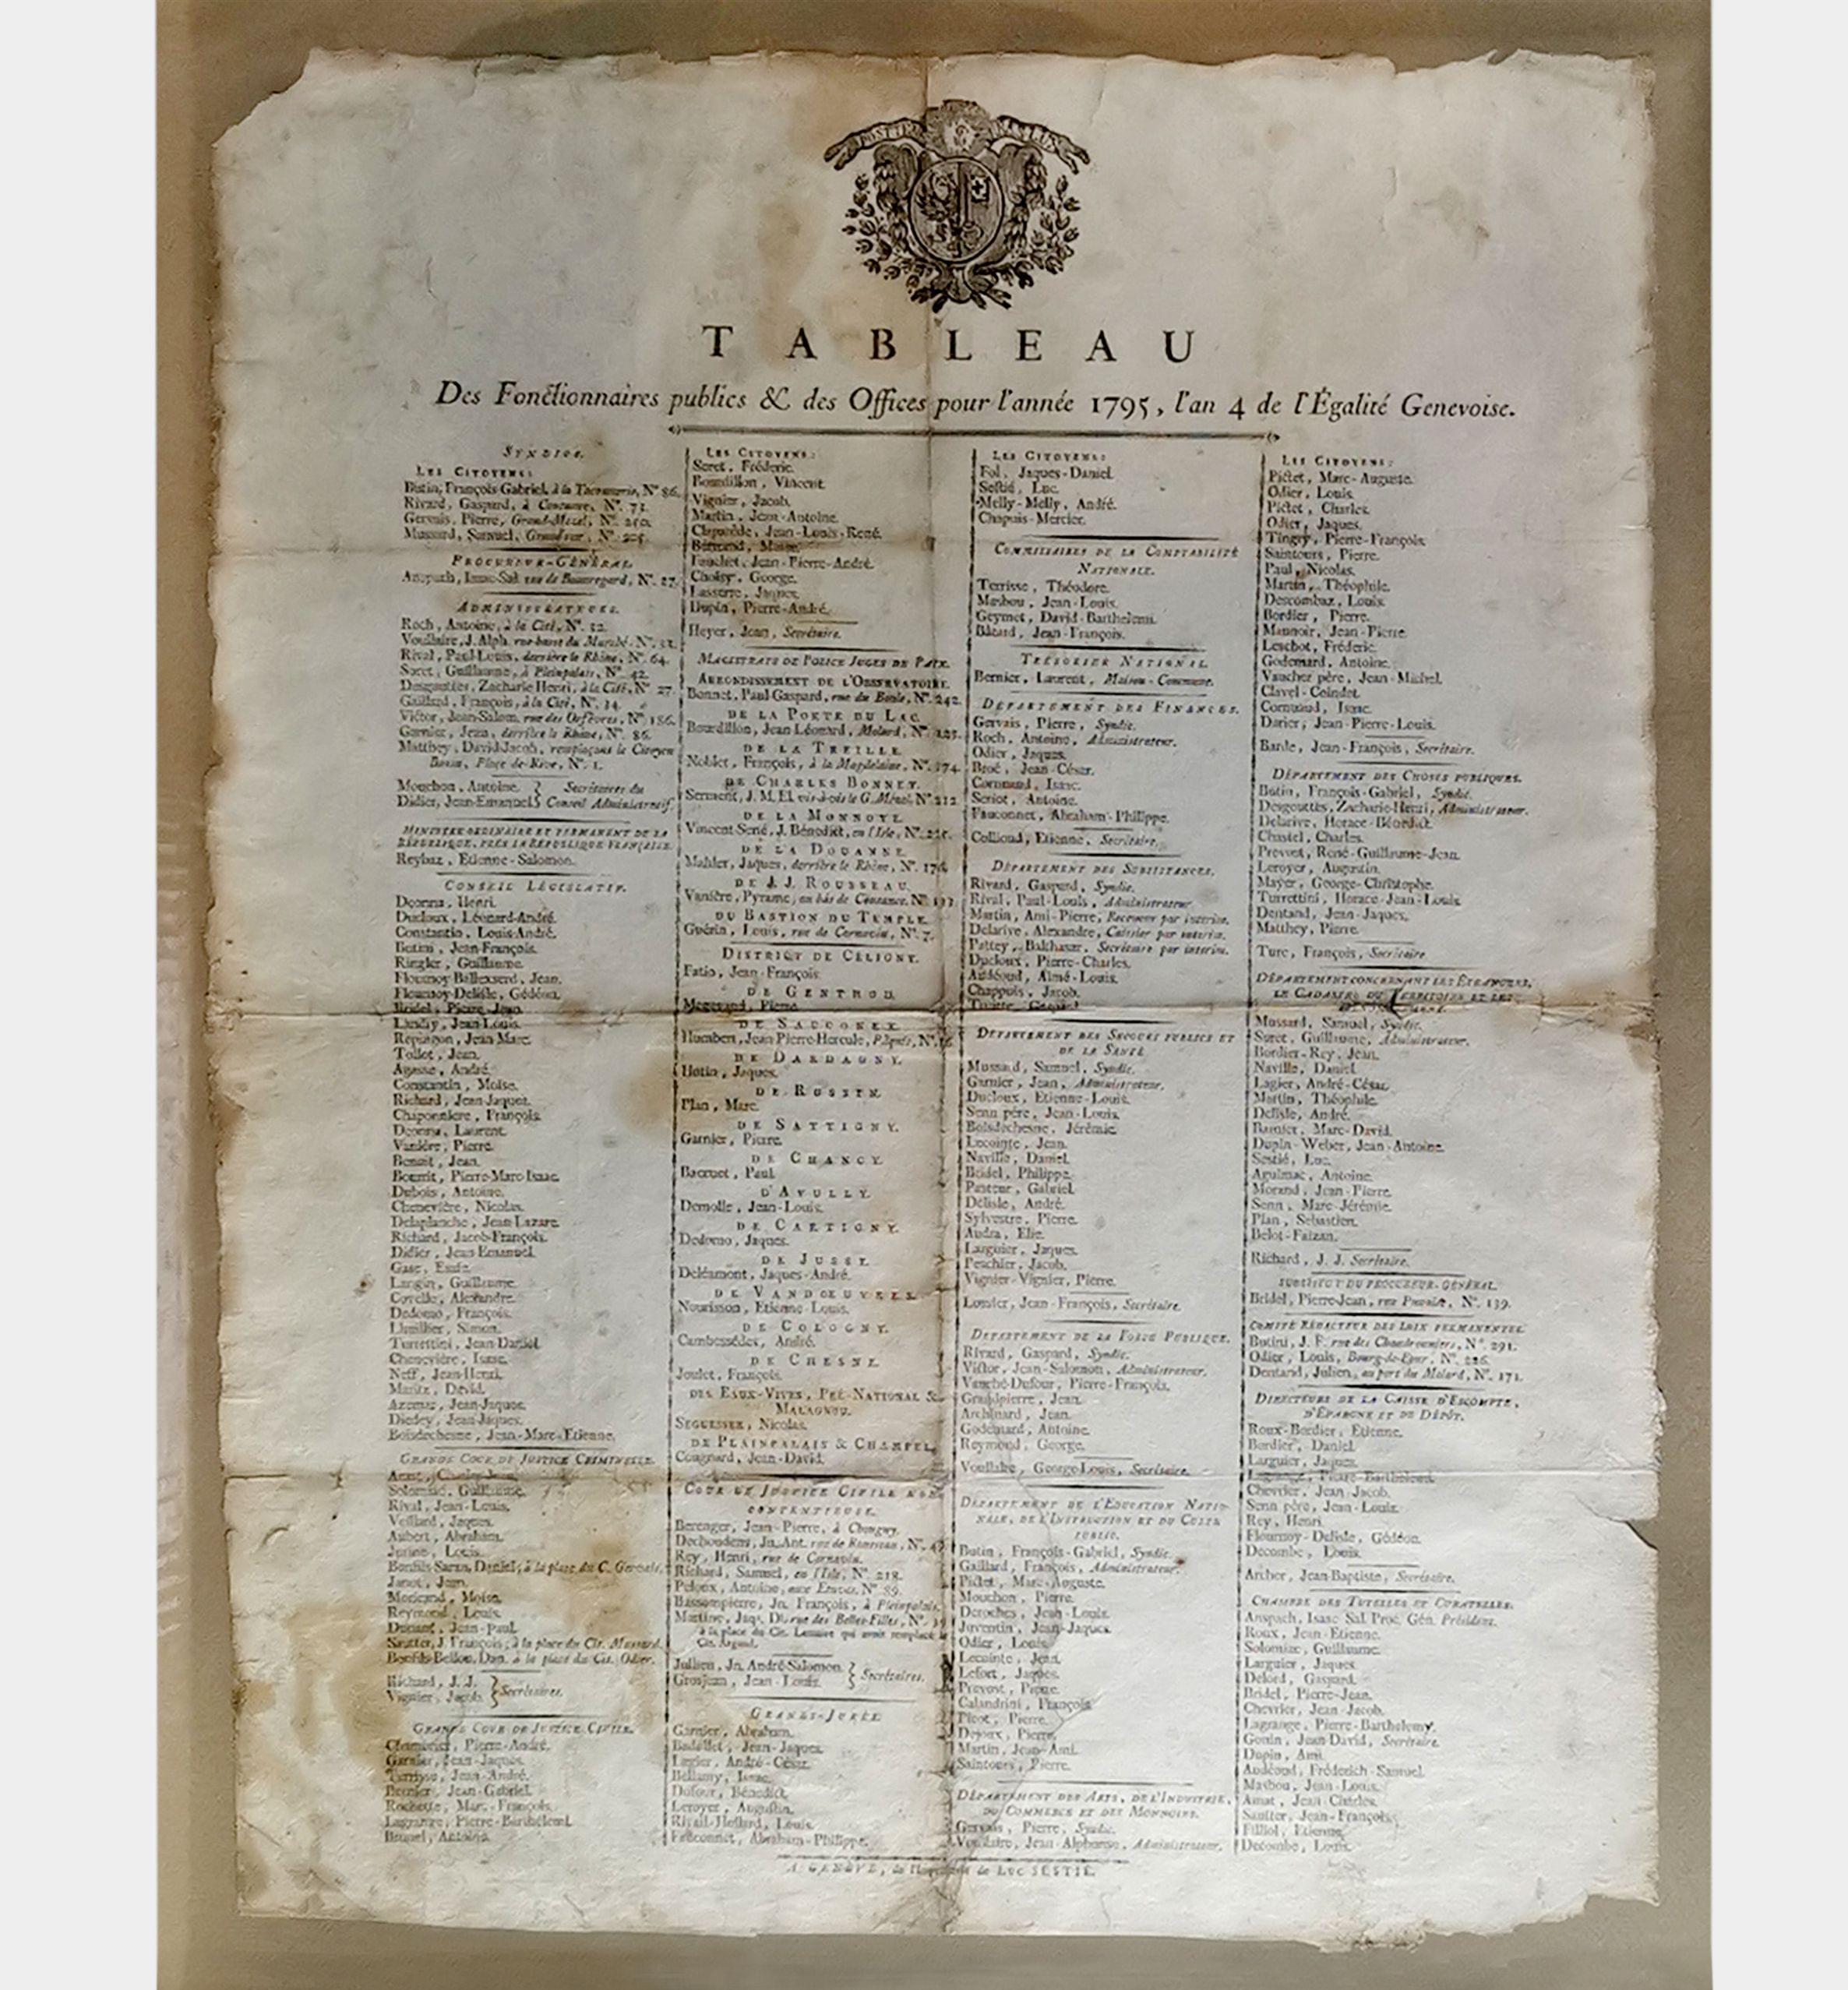 POST TENEBRAS LUX
TABLEAU
Des Fonctionnaires publics & des Offices pour l'année 1795, l'an 4 de l'Égalité Genevoise.
SYNDICS.
LES CITOYENS:
Butin, François-Gabriel, à la Nº 86.
Rivard, Gaspard, à Nº. 73.
Gervais, Pierre, Grand-Mezel, Nº. 250.
Mussard, Samuel, Nº. 225.
PROCUREUR-GÉNÉRAL.
Anspach, Isaac-Sal. rue de Beauregard, Nº. 27.
ADMINISTRATEURS.
Roch, Antoine, à la Cité, Nº. 12.
Voullaire, J. Alph. rue-basse du Marché, Nº. 11.
Rival, Paul-Louis, derrière le Rhône, Nº. 64.
Soret, Guillaume, à Pleinpalais, Nº. 42.
Desgouttes, Zacharie Henri, à la Cité, Nº 27.
Gaillard, François, à la Cité, Nº. 14.
Victor, Jean-Salom. rue des Orfèvres, Nº. 186.
Garnier, Jean, derrière le Rhône, Nº. 86.
Matthey, David-Jacob, remplaçant le Citoyen
Place de Rive, Nº. 1.
Mouchon, Antoine. } Secrétaires du
Didier, Jean-Emanuel } Conseil Administratif.
MINISTRE ORDINAIRE ET PERMANENT DE LA
RÉPUBLIQUE, PRÈS LA RÉPUBLIQUE FRANÇAISE.
Reybaz, Etienne-Salomon.
CONSEIL LÉGISLATIF.
Deonna, Henri.
Ducloux, Léonard-André.
Constantin, Louis-André.
Butini, Jean-François.
Ringler, Guillaume.
Flournoy Ballexserd, Jean.
Flournoy-Delisle, Gédéon.
Bridel, Pierre Jean.
Landry, Jean-Louis.
Repingon, Jean Marc.
Tollot, Jean.
Agasse, André.
Constantin, Moïse.
Richard, Jean-Jaques.
Chaponniere, François.
Deonna, Laurent.
Vaniére, Pierre.
Benoit, Jean.
Bourrit, Pierre-Marc-Isaac.
Dubois, Antoine.
Chenevière, Nicolas.
Delaplanche, Jean-Lazare.
Richard, Jacob-François.
Didier, Jean Emanuel.
Gasc, Esaïe.
Langin, Guillaume.
Covelle, Alexandre.
Dedomo, François.
Lhuillier, Simon.
Turrettini, Jean-Daniel.
Chenevière, Isaac.
Neff, Jean-Henri.
Maritz, David.
Azemar, Jean-Jaques.
Diedey, Jean-Jaques.
Boisdechesne, Jean-Marc-Etienne.
GRANDE COUR DE JUSTICE CRIMINELLE.
Solomiac, Guillaume.
Rival, Jean-Louis.
Veillard, Jaques.
Aubert, Abraham.
Jurine, Louis.
Bonfils-Saran, Daniel, à la place du C. Gervais.
Janot, Jean.
Moricand, Moïse.
Reymond, Louis.
Dunant, Jean-Paul.
Sautter, J. François, à la place du Cit. Mussard.
Bonfils-Bellon, Dan. à la place du Cit. Odier.
Richard, J. J. } Secrétaires.
Vignier, Jacob. }
GRANDE COUR DE JUSTICE CIVILE.
Pierre-André.
Garnier, Jean-Jaques.
Terrisse, Jean-André.
Bernier, Jean-Gabriel.
Rochette, Marc-François.
Lagrange, Pierre-Barthélemi.
Brunel, Antoine.
LES CITOYENS:
Soret, Fréderic.
Bourdillon, Vincent.
Vignier, Jacob.
Martin, Jean-Antoine.
Claparède, Jean-Louis-René.
Jean-Pierre-André.
Choisy, George.
Lasserre, Jaques.
Dupin, Pierre-André.
Heyer, Jean, Secrétaire.
MAGISTRATS DE POLICE JUGES DE PAIX.
ARRONDISSEMENT DE L'OBSERVATOIRE.
Bonnet, Paul-Gaspard, rue du Boule, Nº. 242.
DE LA PORTE DU LAC.
Bourdillon, Jean Léonard, Molard, Nº. 125.
DE LA TREILLE.
Noblet, François, à la Magdelaine, Nº. 274.
DE CHARLES BONNET.
Serment, J. M. El. vis-à-vis le G. Mézel, Nº 212
DE LA MONNOYE.
Vincent-Sené, J. Bénédict, en l'Isle, Nº.
DE LA DOUANNE.
Mahler, Jaques, derrière le Rhône, Nº. 176.
DE J. J. ROUSSEAU.
Vanière, Pyrame, au bas de Coutance, Nº.
DU BASTION DU TEMPLE.
Guérin, Louis, rue de Cornavin, Nº. 7.
DISTRICT DE CELIGNY.
Fatio, Jean-François.
DE GENTHOD.
Pierre.
DE SACCONEX.
Humbert, Jean Pierre-Hercule, Nº.
DE DARDAGNY.
Hutin, Jaques.
DE RUSSIN.
Plan, Marc.
DE SATTIGNY.
Garnier, Pierre.
DE CHANCY.
Bacruet, Paul.
D'AVULLY.
Demolle, Jean-Louis.
DE CARTIGNY.
Dedomo, Jaques.
DE JUSSY.
Deléamont, Jaques-André.
DE VANDŒUVRES.
Nourisson, Etienne-Louis.
DE COLOGNY.
Cambessédes, André.
DE CHESNE.
Joulet, François.
DES EAUX-VIVES, PRÉ-NATIONAL &
MALAGNOU.
SEGUESSER, Nicolas.
DE PLAINPALAIS & CHAMPEL.
Cougnard, Jean-David.
COUR DE JUSTICE CIVILE NON
CONTENTIEUSE.
Berenger, Jean-Pierre, à Chougny.
Dechoudens, Jn. Ant. rue de Rousseau, Nº.
Rey, Henri, rue de Cornavin.
Richard, Samuel, en l'Isle, Nº. 218.
Peloux, Antoine, aux Etuves, Nº. 89.
Bassompierre, Jn. François, à Pleinpalais.
Martine, Jaqs. Di. rue des Belles-Filles, Nº.
à la place du Cit. qui avoit remplacé le
Cit. Argand.
Jullien, Jn. André-Salomon. } Secrétaires.
Grosjean, Jean-Louis. }
GRAND-JURÉE.
Garnier, Abraham.
Badollet, Jean-Jaques.
Lagier, André-César.
Bellamy, Isaac.
Dufour, Bénédict.
Leroyer, Augustin.
Louis.
Fauconnet, Abraham-Philippe.
LES CITOYENS:
Fol, Jaques-Daniel.
Sestié, Luc.
Melly-Melly, André.
Chapuis-Mercier.
COMMISSAIRES DE LA COMPTABILITÉ
NATIONALE.
Terrisse, Théodore.
Masbou, Jean-Louis.
Geymet, David-Barthelemi.
Bâtard, Jean-François.
TRÉSORIER NATIONAL.
Bernier, Laurent, Maison-Commune.
DÉPARTEMENT DES FINANCES.
Gervais, Pierre, Syndic.
Roch, Antoine, Administrateur.
Odier, Jaques.
Broé, Jean-César.
Cornuaud, Isaac.
Seriot, Antoine.
Fauconnet, Abraham-Philippe.
Colliond, Etienne, Secrétaire.
DÉPARTEMENT DES SUBSISTANCES.
Rivard, Gaspard, Syndic.
Rival, Paul-Louis, Administrateur.
Martin, Ami-Pierre, Receveur par interim.
Delarive, Alexandre, Caissier par interim.
Pattey, Balthasar, Secrétaire par interim.
Ducloux, Pierre-Charles.
Audéoud, Aimé-Louis.
Chappuis, Jacob.
DÉPARTEMENT DES SECOURS PUBLICS ET
DE LA SANTÉ.
Mussard, Samuel, Syndic.
Garnier, Jean, Administrateur.
Ducloux, Etienne-Louis.
Senn père, Jean-Louis.
Boisdechesne, Jérémie.
Lecointe, Jean.
Naville, Daniel.
Bridel, Philippe.
Pasteur, Gabriel.
Délisle, André.
Sylvestre, Pierre.
Audra, Elie.
Larguier, Jaques.
Peschier, Jacob.
Vignier-Vignier, Pierre.
Losier, Jean-François, Secrétaire.
DÉPARTEMENT DE LA FORCE PUBLIQUE.
Rivard, Gaspard, Syndic.
Victor, Jean-Salomon, Administrateur.
Vauché-Dufour, Pierre-François.
Grandpierre, Jean.
Archinard, Jean.
Godemard, Antoine.
Reymond, George.
Voullaire, George-Louis, Secrétaire.
DÉPARTEMENT DE L'EDUCATION NATIO-
NALE, DE L'INSTRUCTION ET DU CULTE
PUBLIC.
Butin, François-Gabriel, Syndic.
Gaillard, François, Administrateur.
Pictet, Marc-Auguste.
Mouchon, Pierre.
Deroches, Jean-Louis.
Juventin, Jean-Jaques.
Odier, Louis.
Lecointe, Jean.
Lefort, Jaques.
Prevost, Pierre.
Calandrini, François.
Picot, Pierre.
Dejoux, Pierre.
Martin, Jean-Ami.
Saintours, Pierre.
DÉPARTEMENT DES ARTS, DE L'INDUSTRIE,
DU COMMERCE ET DES MONNOIES.
Gervais, Pierre, Syndic.
Voullaire, Jean-Alphonse, Administrateur.
LES CITOYENS:
Pictet, Marc-Auguste.
Odier, Louis.
Pictet, Charles.
Odier, Jaques.
Tingry, Pierre-François.
Saintours, Pierre.
Paul, Nicolas.
Martin, Théophile.
Descombaz, Louis.
Bordier, Pierre.
Maunoir, Jean-Pierre.
Leschot, Fréderic.
Godemard, Antoine.
Vaucher père, Jean-Michel.
Clavel-Coindet.
Cornuaud, Isaac.
Darier, Jean-Pierre-Louis.
Barde, Jean-François, Secrétaire.
DÉPARTEMENT DES CHOSES PUBLIQUES.
Butin, François-Gabriel, Syndic.
Desgouttes, Zacharie-Henri, Administrateur.
Delarive, Horace-Bénédict.
Chastel, Charles.
Prevost, René-Guillaume-Jean.
Leroyer, Augustin.
Mayer, George-Christophe.
Turrettini, Horace-Jean-Louis.
Dentand, Jean-Jaques.
Matthey, Pierre.
Turc, François, Secrétaire.
DÉPARTEMENT CONCERNANT LES ÉTRANGERS,
LE CADASTRE DU TERRITOIRE ET LES
Mussard, Samuel, Syndic.
Soret, Guillaume, Administrateur.
Bordier-Rey, Jean.
Naville, Daniel.
Lagier, André-César.
Martin, Théophile.
Delisle, André.
Barnier, Marc-David.
Dupin-Weber, Jean-Antoine.
Sestié, Luc.
Aguimac, Antoine.
Morand, Jean-Pierre.
Senn, Marc-Jérémie.
Plan, Sebastien.
Belot-Faizan.
Richard, J. J. Secrétaire.
SUBSTITUT DU PROCUREUR-GÉNÉRAL.
Bridel, Pierre-Jean, rue Nº. 139.
COMITÉ RÉDACTEUR DES LOIX PERMANENTES.
Butini, J. F. rue des Chaudronniers, Nº. 291.
Odier, Louis, Bourg-de-Four, Nº. 226.
Dentand, Julien, au port du Molard, Nº. 171.
DIRECTEURS DE LA CAISSE D'ESCOMPTE,
D'ÉPARGNE ET DE DÉPÔT.
Roux-Bordier, Etienne.
Bordier, Daniel.
Larguier, Jaques.
Lagrange, Pierre-Barthélemi.
Chevrier, Jean-Jacob.
Senn père, Jean-Louis.
Rey, Henri.
Flournoy-Delisle, Gédéon.
Decombe, Louis.
Archer, Jean-Baptiste, Secrétaire.
CHAMBRE DES TUTELLES ET CURATELLES.
Anspach, Isaac Sal. Proc. Gén. Président.
Roux, Jean-Etienne.
Solomiac, Guillaume.
Larguier, Jaques.
Delord, Gaspard.
Bridel, Pierre-Jean.
Chevrier, Jean-Jacob.
Lagrange, Pierre-Barthelemy.
Gouin, Jean-David, Secrétaire.
Dupin, Ami.
Audéoud, Fréderich-Samuel.
Masbou, Jean-Louis.
Amat, Jean-Charles.
Sautter, Jean-François.
Filliol, Etienne.
Decombe, Louis.
A GENÈVE, de l'Imprimerie de LUC SESTIÉ.